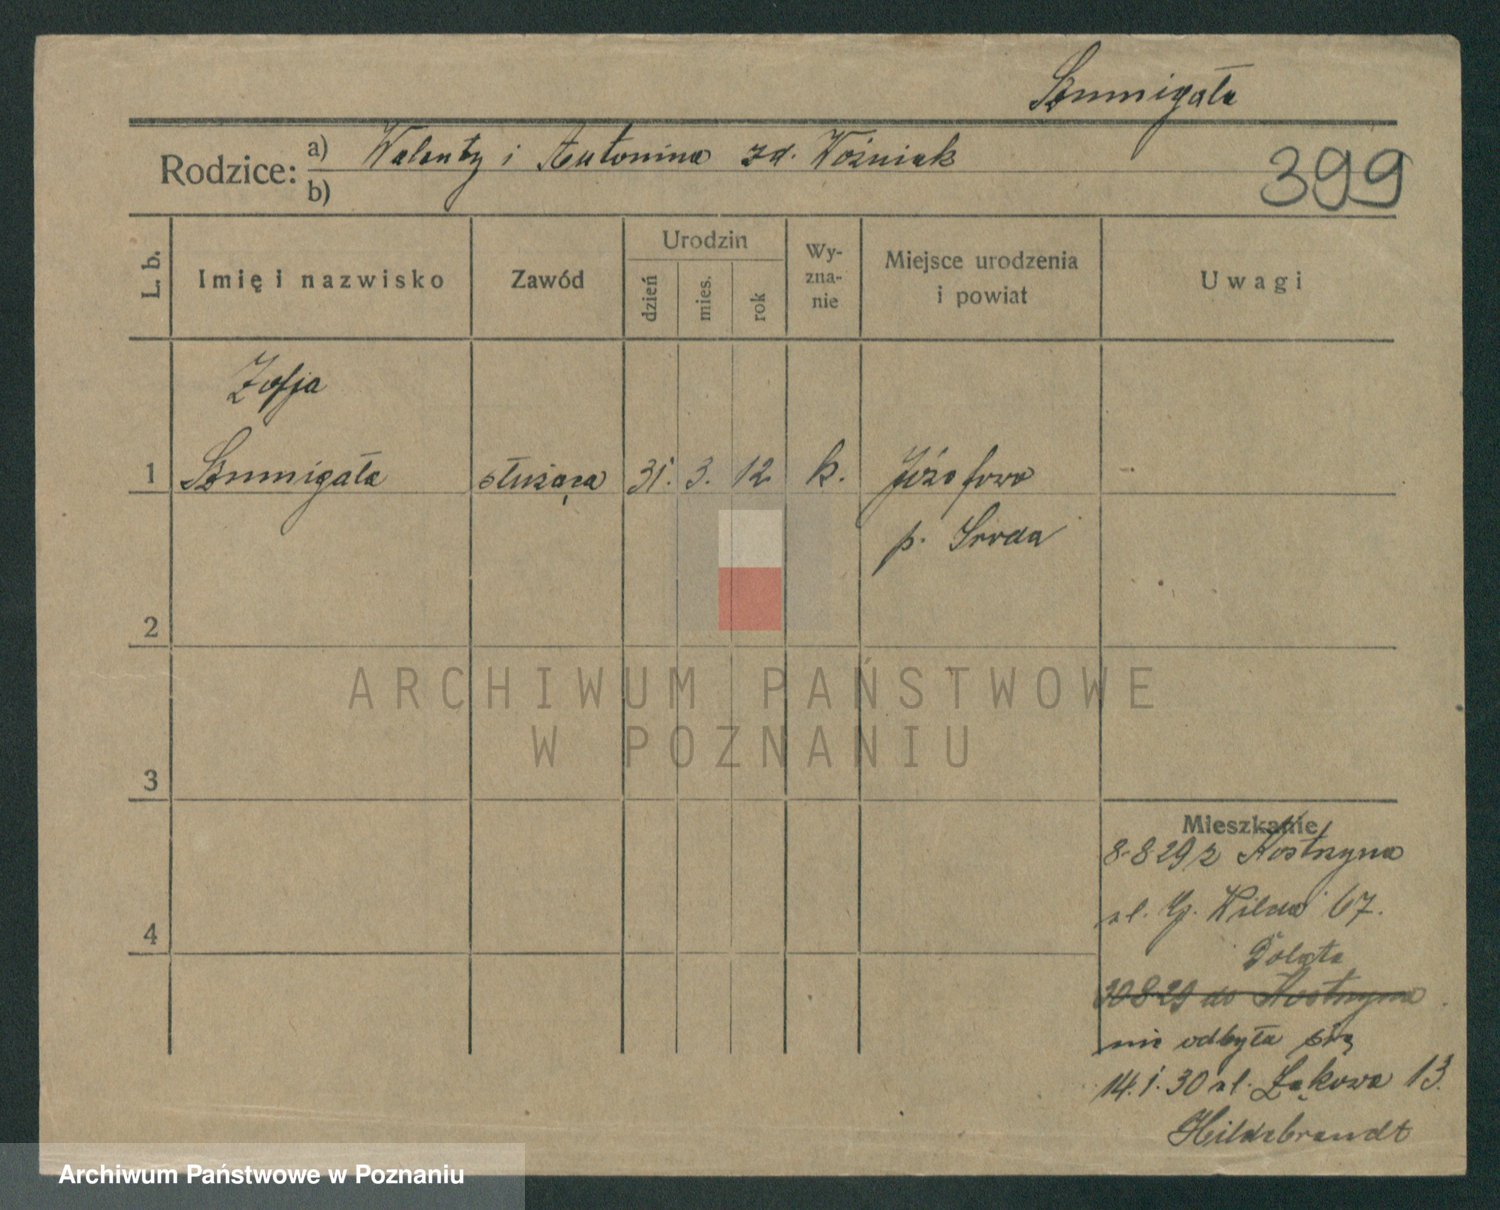 Szumigała
Rodzice: a) Walenty i Antonina zd. Woźniak
b)
399
L. b.
Imię i nazwisko
Zawód
Urodzin
dzień
mies.
rok
Wy-
zna-
nie
Miejsce urodzenia
i powiat
Uwagi
Zofja
1 Szumigała służąca 31. 3. 12 k. Józefowo
p. Środa
2
3
4
ARCHIWUM PAŃSTWOWE
W POZNANIU
Mieszkanie
8.8.29 z Kostrzyna
ul. G. Wilda 67.
Dolata
30.8.29 do Kostrzyna
nie odbyła się
14.1.30 ul. Łąkowa 13.
Hildebrandt
Archiwum Państwowe w Poznaniu